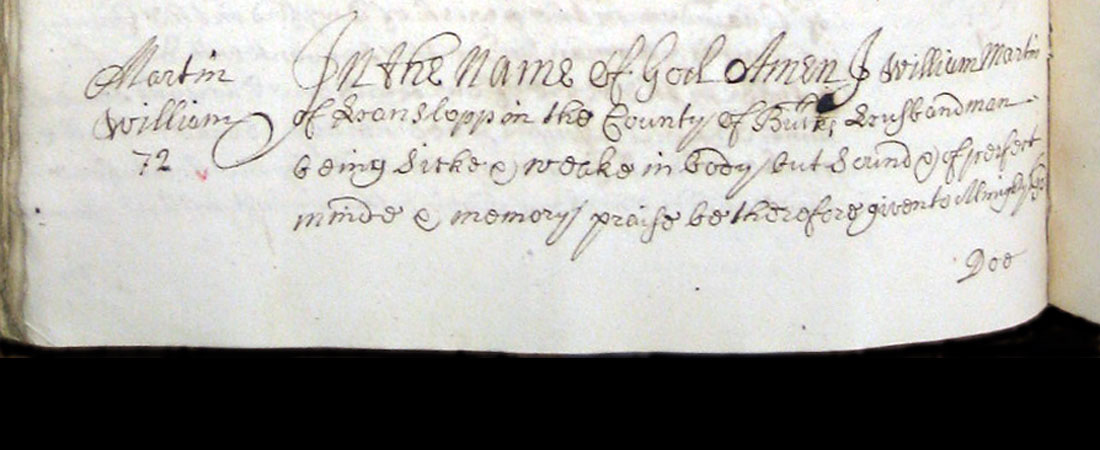 Martin
William
72
In the Name of God Amen I William Martin
of Hanslopp in the County of Bucks Husbandman
being Sicke & weake in body but Sound & of perfect
minde & memory praise be therefore given to Allmighty God
Doe